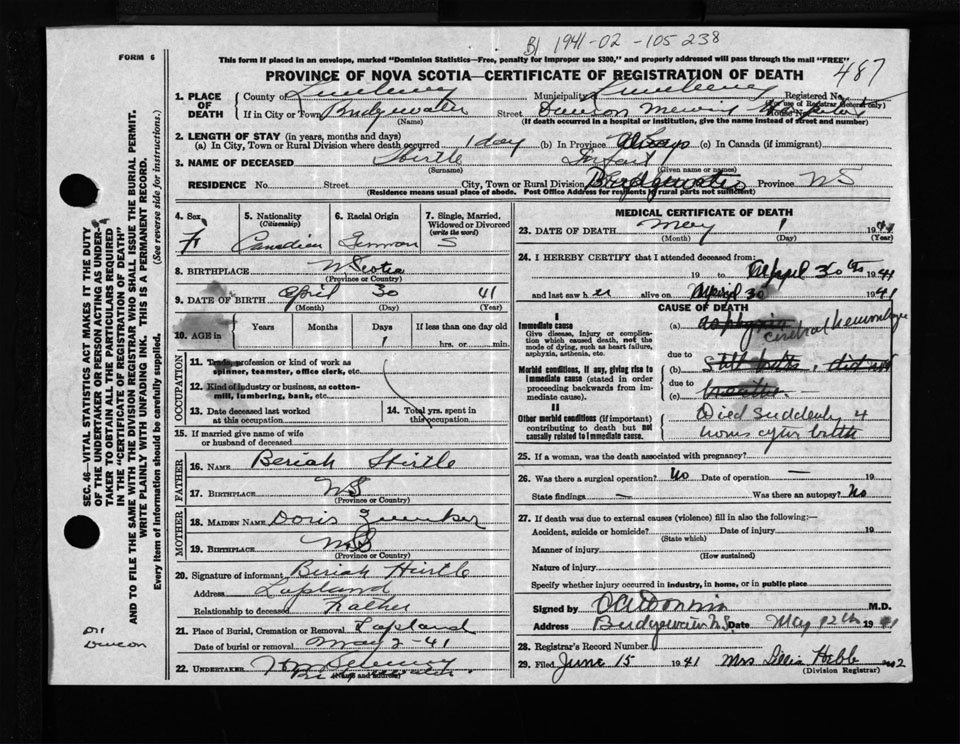 B1 1941-02-105238
487
FORM 6
This form if placed in an envelope, marked "Dominion Statistics—Free, penalty for improper use $300," and properly addressed will pass through the mail "FREE"
PROVINCE OF NOVA SCOTIA—CERTIFICATE OF REGISTRATION OF DEATH
1. PLACE OF DEATH
County of Lunenburg Municipality Lunenburg Registered No.
(For use of Registrar General only)
If in City or Town Bridgewater Street House No.
(Name) (If death occurred in a hospital or institution, give the name instead of street and number)
2. LENGTH OF STAY (in years, months and days)
(a) In City, Town or Rural Division where death occurred 1 day (b) In Province (c) In Canada (if immigrant)
3. NAME OF DECEASED Hirtle Infant
(Surname) (Given name or names)
RESIDENCE No. Street City, Town or Rural Division Bridgewater Province NS
(Residence means usual place of abode. Post Office Address for residents in rural parts not sufficient)
4. Sex
F
5. Nationality
(Citizenship)
Canadian
6. Racial Origin
German
7. Single, Married, Widowed or Divorced
(write the word)
S
8. BIRTHPLACE N Scotia
(Province or Country)
9. DATE OF BIRTH April 30 41
(Month) (Day) (Year)
10. AGE in
Years Months Days If less than one day old
1 hrs. or min.
OCCUPATION
11. Trade, profession or kind of work as
spinner, teamster, office clerk, etc.
12. Kind of industry or business, as cotton-
mill, lumbering, bank, etc.
13. Date deceased last worked
at this occupation
14. Total yrs. spent in
this occupation
15. If married give name of wife
or husband of deceased
FATHER
16. NAME Beriah Hirtle
17. BIRTHPLACE NS
(Province or Country)
MOTHER
18. MAIDEN NAME Doris
19. BIRTHPLACE NS
(Province or Country)
20. Signature of informant Beriah Hirtle
Address Lapland
Relationship to deceased Father
21. Place of Burial, Cremation or Removal Lapland
Date of burial or removal May 2-41
22. UNDERTAKER
(Name and address)
MEDICAL CERTIFICATE OF DEATH
23. DATE OF DEATH May 1 1941
(Month) (Day) (Year)
24. I HEREBY CERTIFY that I attended deceased from:
19 to April 30th 1941
and last saw her alive on April 30 1941
CAUSE OF DEATH
I
Immediate cause
Give disease, injury or complica-
tion which caused death, not the
mode of dying, such as heart failure,
asphyxia, asthenia, etc.
(a) asphyxia
cerebral hemorrhage
due to
Morbid conditions, if any, giving rise to
immediate cause (stated in order
proceeding backwards from im-
mediate cause).
(b)
due to
(c)
II
Other morbid conditions (if important)
contributing to death but not
causally related to immediate cause.
Died suddenly 4
hours after birth
25. If a woman, was the death associated with pregnancy?
26. Was there a surgical operation? No Date of operation — 19
State findings — Was there an autopsy? No
27. If death was due to external causes (violence) fill in also the following:—
Accident, suicide or homicide? Date of injury 19
(State which)
Manner of injury
(How sustained)
Nature of injury
Specify whether injury occurred in industry, in home, or in public place
Signed by M.D.
Address Bridgewater N.S. Date May 12th 1941
28. Registrar's Record Number
29. Filed June 15 1941 Mrs Hebb
(Division Registrar)
SEC. 46—VITAL STATISTICS ACT MAKES IT THE DUTY
OF THE UNDERTAKER OR PERSON ACTING AS UNDER-
TAKER TO OBTAIN ALL THE PARTICULARS REQUIRED
IN THE "CERTIFICATE OF REGISTRATION OF DEATH"
AND TO FILE THE SAME WITH THE DIVISION REGISTRAR WHO SHALL ISSUE THE BURIAL PERMIT.
WRITE PLAINLY WITH UNFADING INK. THIS IS A PERMANENT RECORD.
Every item of information should be carefully supplied.
(See reverse side for instructions.)